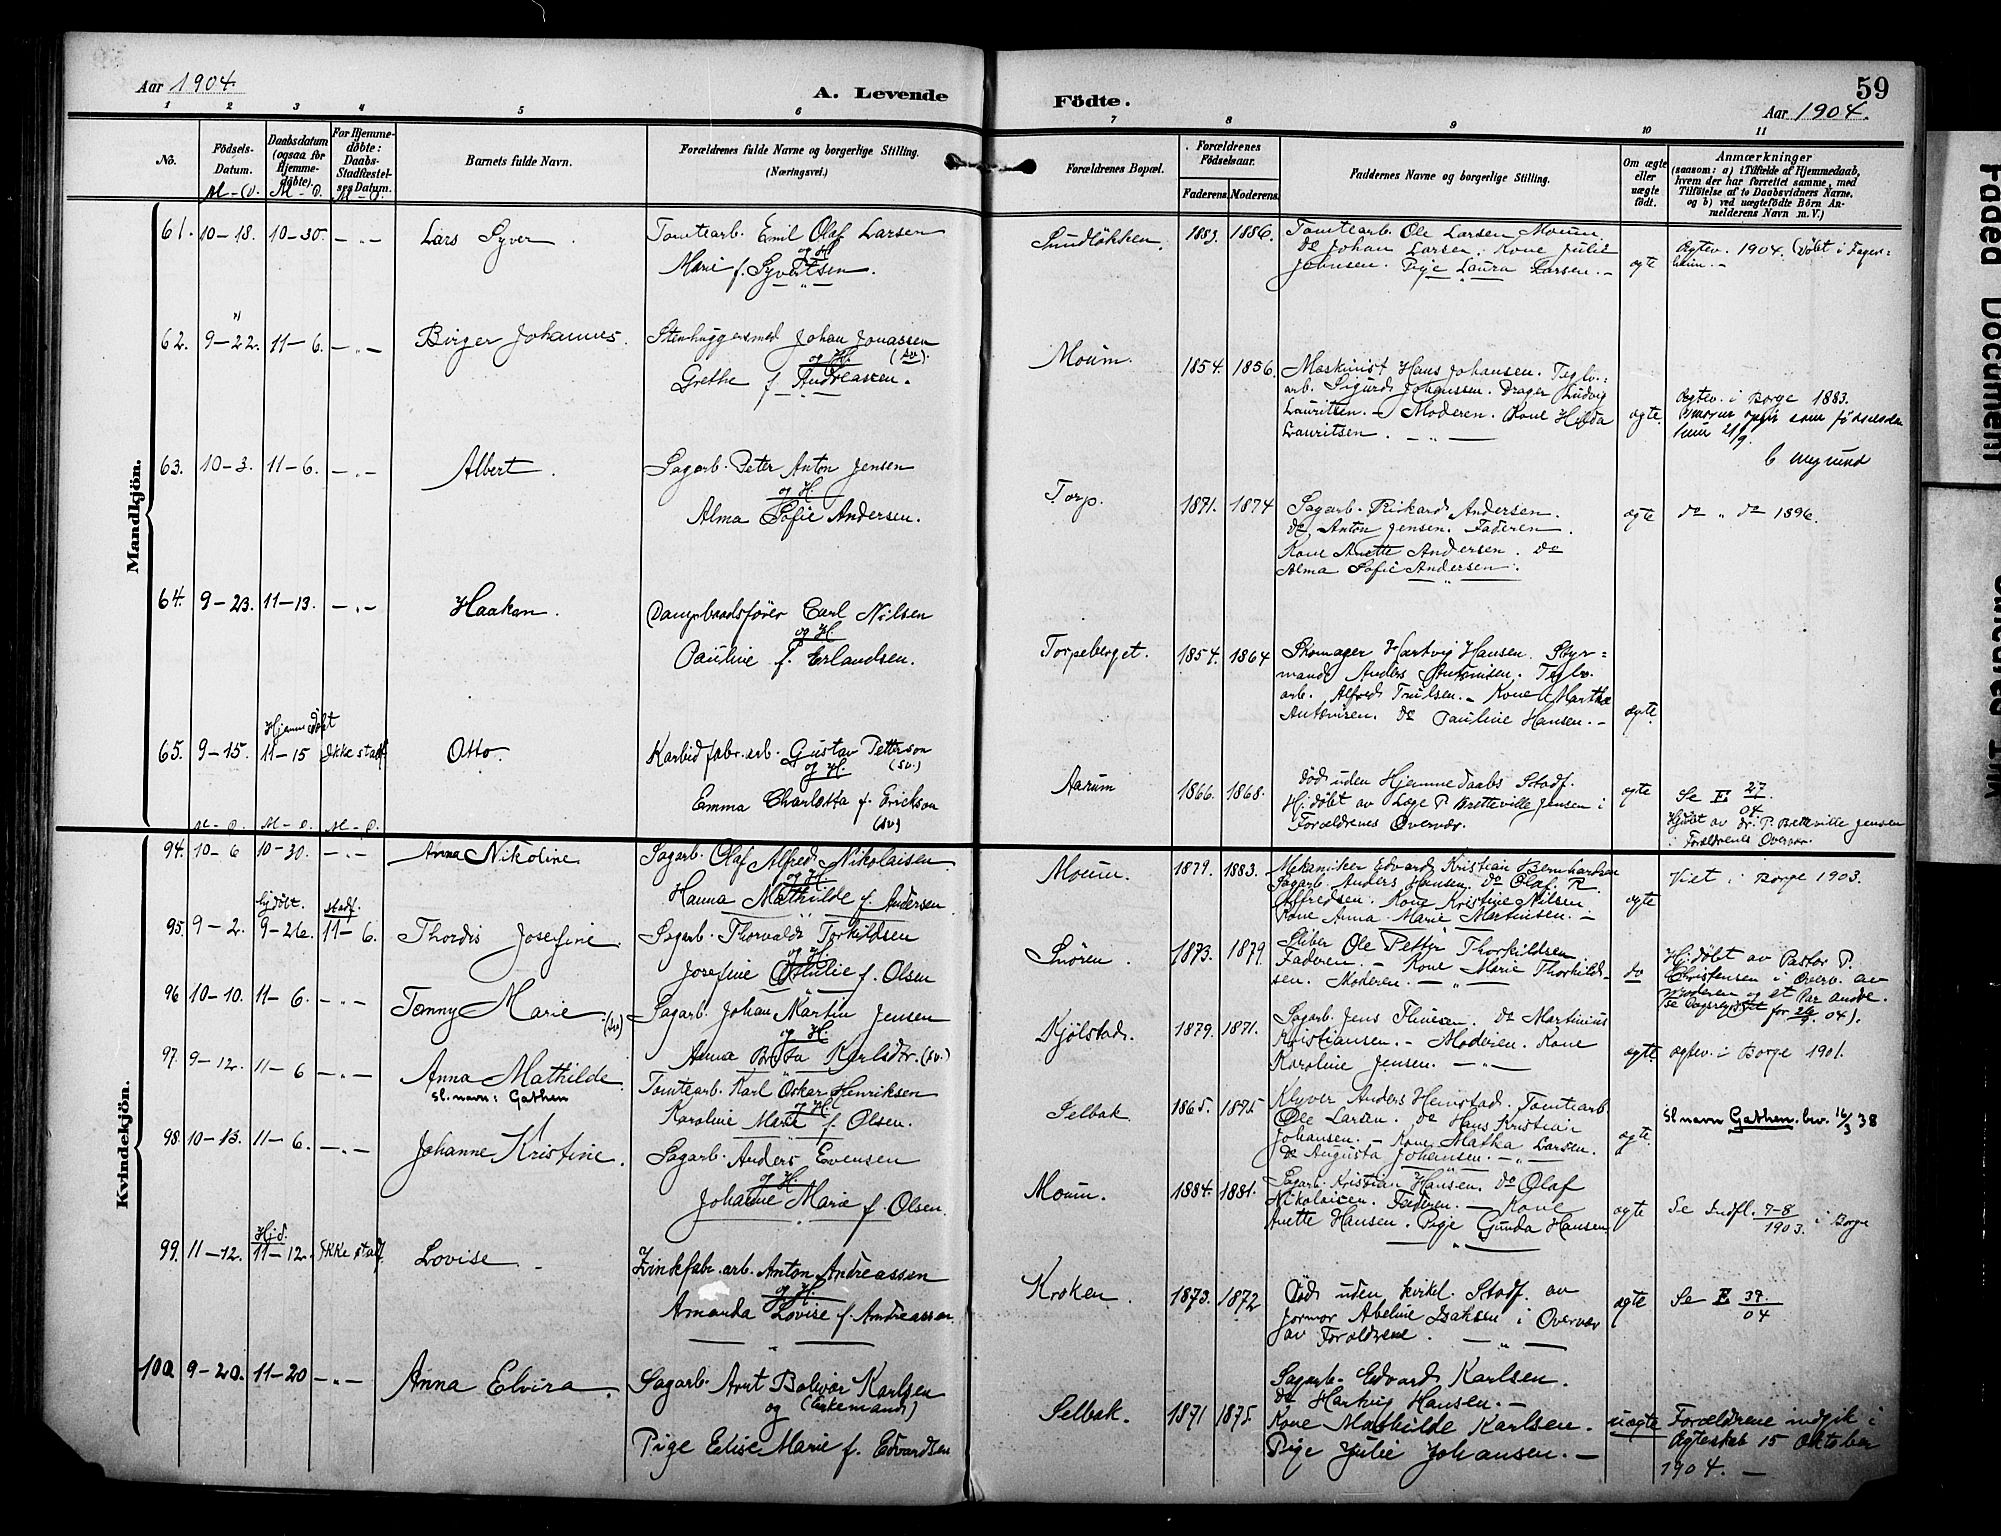 Aar 1904.
A. Levende
Födte.
59
Aar 1904.
1 2 3 4 5 6 7 8 9 10 11
No.
Födsels-Datum.
M – D.
Daabsdatum (ogsaa for Hjemmedöbte).
M – D.
For Hjemmedöbte: Daabs-Stadfæstelses Datum.
M – D.
Barnets fulde Navn.
Forældrenes fulde Navne og borgerlige Stilling.
(Næringsvei.)
Forældrenes Bopæl.
Forældrenes Födselsaar.
Faderens. Moderens.
Faddernes Navne og borgerlige Stilling.
Om ægte eller uægte födt.
Anmærkninger
(saasom: a) i Tilfælde af Hjemmedaab, hvem der har forrettet samme, med Tilföielse af to Daabsvidners Navne. og b) ved uægtefödte Börn Anmelderens Navn m. V.)
Mandkjön.
61. 10–18. 10–30. –„– Lars Syver.
Tomtearb. Emil Olaf Larsen
og H.
Marie f. Syvertsen.
Sundløkken. 1883. 1886.
Tomtearb. Ole Larsen Moum.
do Johan Larsen. Kone Julie
Johnsen. Pige Laura Larsen. –
ægte
Ægtev. 1904. (Døbt i Fager=
heim. –
62. 9–22. 11–6. –„– Birger Johannes.
Stenhuggersmed Johan Jonassen
og H. (sv.)
Grethe f. Andreasen.
Moum. 1854. 1856.
Maskinist Hans Johansen. Teglv.=
arb. Sigurd Johanssen. Drager Ludvig
Lauritsen. – Moderen. Kone Hilda
Lauritsen. –„–
ægte.
Ægtev. i Borge 1883.
63. 10–3. 11–6. –„– Albert.
Sagarb. Peter Anton Jensen
og H.
Alma Sofie Andersen.
Torp. 1871. 1874
Sagarb. Rikard Andersen.
do Anton Jensen. Faderen.
Kone Anette Andersen. do
Alma Sofie Andersen.
ægte
do „ do 1896.
64. 9–23. 11–13. –„– Haakon.
Dampbaadsfører Carl Nilsen
og H.
Pauline f. Erlandsen.
Torpeberget. 1854. 1864
Skomager Hartvig Hansen. Styr=
mand Anders. Teglv.
arb. Alfred Trulsen. – Kone Marthe
do Pauline Hansen. –
ægte.
Hjemmedøbt
65. 9–15. 11–15 Ikke stadf. Otto.
Karbidfabr.arb. Gustav Petterson
og H. (sv.)
Emma Charlotta f. Erickson
(sv)
Aarum 1866. 1868.
Død uden Hjemmedaabs Stadf.
Hj.døbt av Læge P. Bretteville Jensen i
Forældrenes Overvær.
ægte
Se E 27/04
Hjdøbt av dr. P. Bretteville Jensen
i Forældrenes Overvær.
M – D. M – D. M – D.
Kvindekjön.
94. 10–6 10–30. –„– Anna Nikoline
Sagarb. Olaf Alfred Nikolaisen
og H.
Hanna Mathilde f. Andersen.
Moum. 1879. 1883.
Mekaniker Edvard Kristian Bernhardsen
Sagarb. Anders Hansen. do Olaf R.
Alfredsen. Kone Kristine Nilsen
Kone Anna Marie Martinsen. –
ægte
Viet i Borge 1903.
hjdøbt. stadf.
95. 9–2. 9–26. 11–6. Thordis Josefine.
Sagarb. Thorvald Torkildsen
og H.
Josefine Othilie f. Olsen
Snøren. 1873. 1879.
Sliber Ole Petter Thorkildsen.
Faderen. – Kone Marie Thorkild-
sen. Moderen. –„–
do
Hj.døbt av Pastor P.
Christensen i Overv. av
Moderen og et Par andre.
Se Dagsregistret for 26/9 04).
96 10–10. 11–6. –„– Tonny Marie
Sagarb. Johan Martin Jensen
(sv) og H.
Anna Brita Karlsdtr. (sv.)
Kjølstad. 1879. 1871.
Sagarb. Jens Thuesen. do Martinius
Kristiansen. – Moderen. Kone
Karoline Jensen. –„–
ægte
ægtev. i Borge 1901.
97. 9–12. 11–6 –„– Anna Mathilde.
Sl.navn: Gathen
Tomtearb. Karl Oskar Henriksen
og H.
Karoline Marie f. Olsen.
Selbak 1865. 1875
Klyver Anders Hemstad. Tomtearb.
Ole Larsen. do Hans Kristian
Johansen. – Kone Mathea Larsen.
do Augusta Johansen. –„–
ægte.
Sl.navn Gathen. bev. 16/3 38
98. 10–13. 11–6. –„– Johanne Kristine.
Sagarb. Anders Evensen
og H.
Johanne Marie f. Olsen.
Moum. 1884. 1881.
Sagarb. Kristian Hansen. do Olaf
Nikolaisen. Faderen. – Kone
Anette Hansen. Pige Gunda Hansen.
ægte
Se Indfl. 7–8/1903. i Borge
Hjd.
99. 11–12. 11–12. Ikke stadf. Lovise
Zinkfabr.arb. Anton Andreassen
og H.
Amanda Lovise f. Andreassen.
Kroken. 1873. 1872
Død uden kirkel. Stadf. av
Jormor Abeline Isaksen i Overvær
av Forældrene. –„–
ægte
Se E 39./04
100. 9–20. 11–20 –„– Anna Elvira.
Sagarb. Arnt Bolivar Karlsen
og (Enkemand)
Pige Elise Marie f. Edvardsen
Selbak. 1871 1875.
Sagarb. Edvard Karlsen.
do Hartvig Hansen. –
Kone Mathilde Karlsen.
Pige Julie Johansen. –
uægte
Forældrene indgik i
Ægteskab 15 Oktober
1904. –
Faded Document